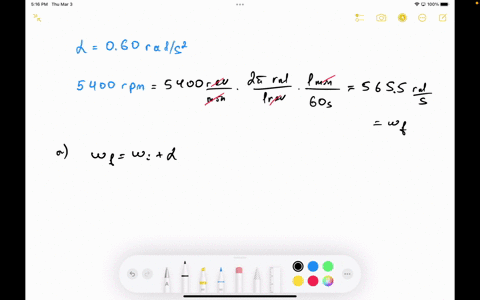 5:16 PM Thu Mar 3
100%
α = 0.60 rad/s²
5400 rpm = 5400 rev/min · 2π rad/1rev · 1min/60s = 565.5 rad/s
= ωf
a) ωf = ωi + α